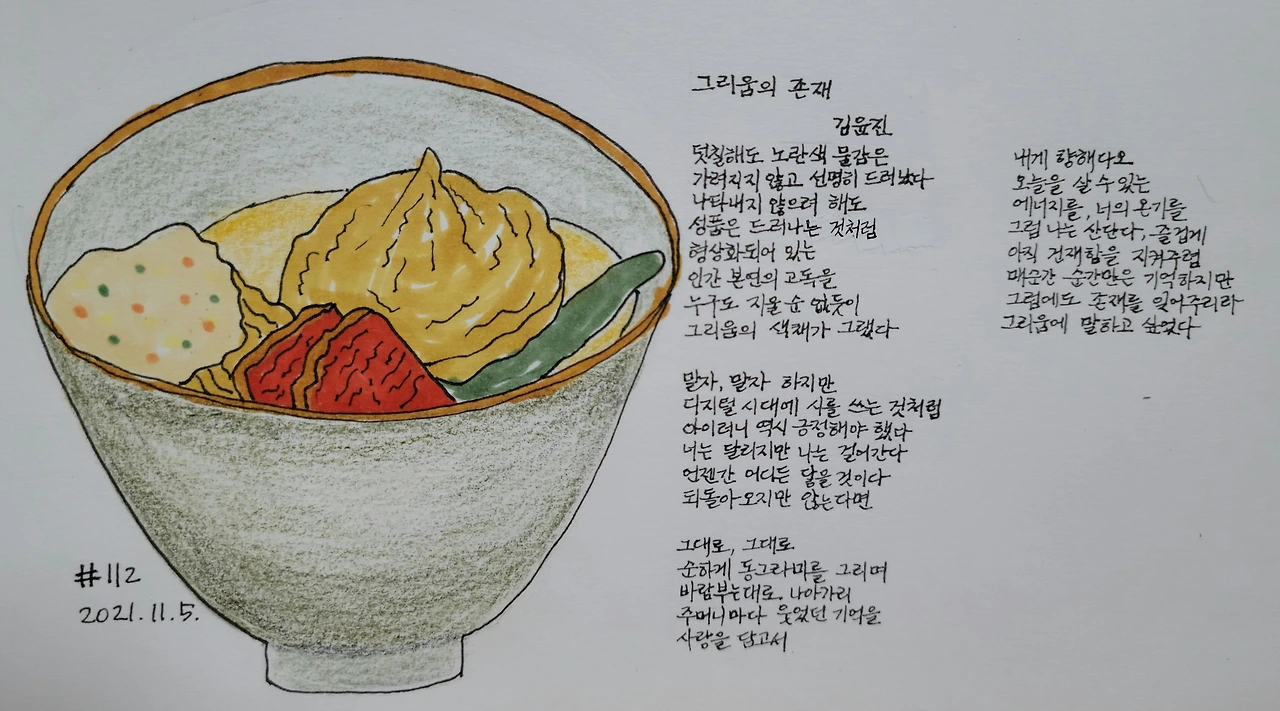 그리움의 존재
김윤진
덧칠해도 노란색 물감은
가려지지 않고 선명히 드러났다
나타내지 않으려 해도
성품은 드러나는 것처럼
형상화되어 있는
인간 본연의 고독을
누구도 지울 순 없듯이
그리움의 색채가 그랬다
말자, 말자 하지만
디지털 시대에 시를 쓰는 것처럼
아이러니 역시 긍정해야 했다
너는 달리지만 나는 걸어간다
언젠간 어디든 닿을 것이다
되돌아오지만 않는다면
그대로, 그대로
순하게 동그라미를 그리며
바람부는대로 나아가리
주머니마다 웃었던 기억을
사랑을 담고서
내게 향해다오
오늘을 살 수 있는
에너지를, 너의 온기를
그럼 나는 산단다, 즐겁게
아직 건재함을 지켜주렴
매순간 순간만은 기억하지만
그럼에도 존재를 잊어주리라
그리움에 말하고 싶었다
#112
2021.11.5.